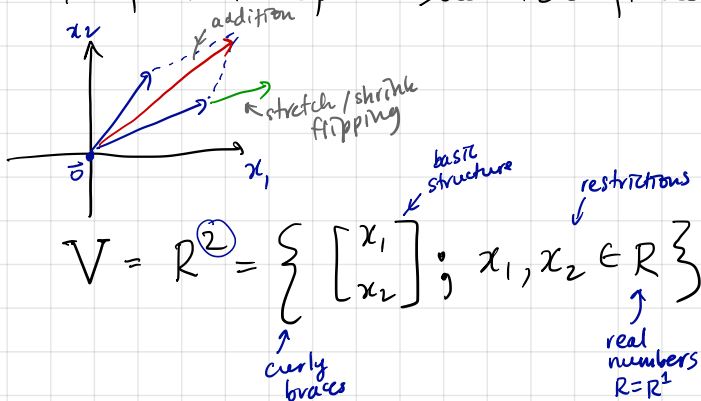 addition
x₂
stretch / shrink
flipping
0⃗
x₁
basic
structure
restrictions
V = R² = { [x₁ x₂] ; x₁, x₂ ∈ R }
curly
braces
real
numbers
R = R¹